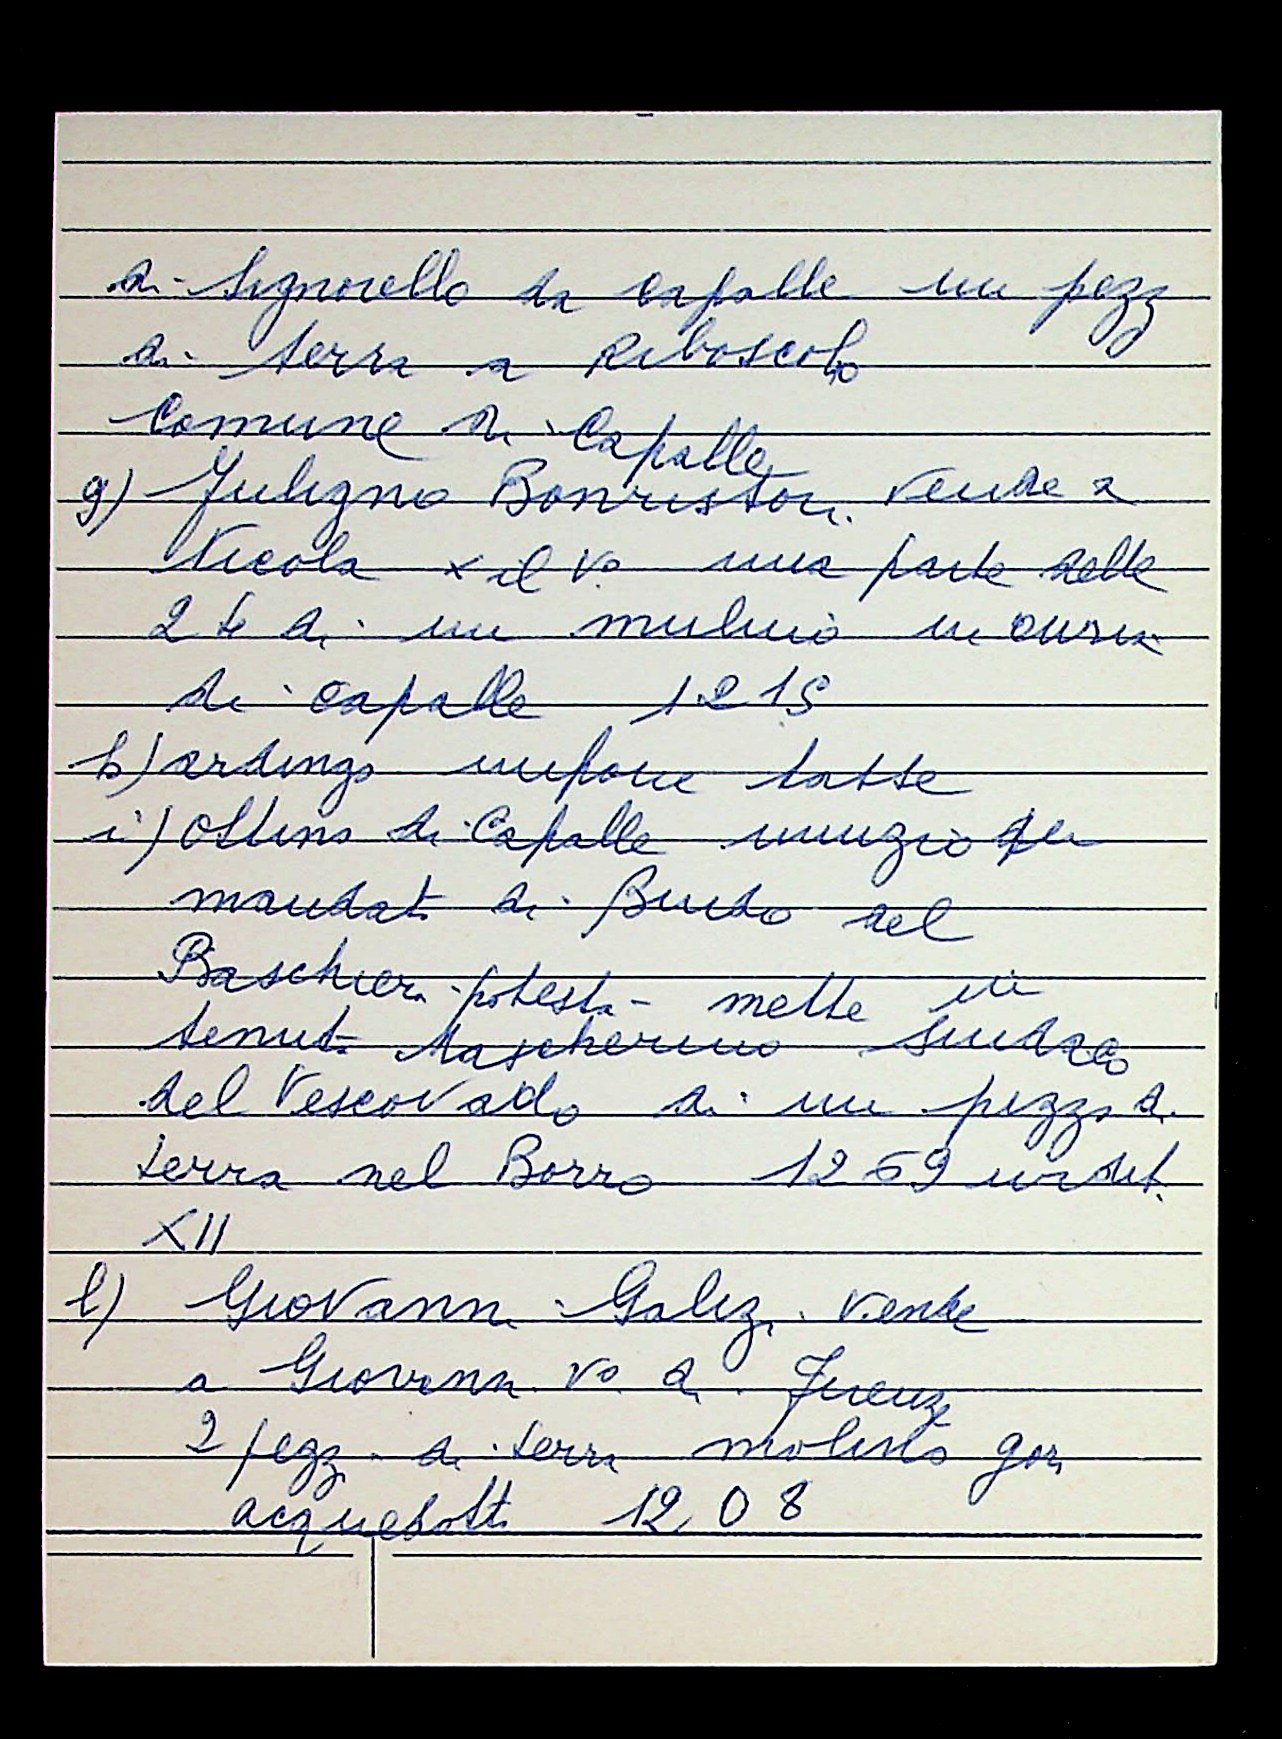 di Signorello da Capalle un pezz
di terra a Riboscolo
Comune di Capalle
g) Juligno Bonristori vende a
Nicola x il Vo una parte delle
2 te di un mulino in curia
di Capalle 1215
h) ardingo impone tasse
i) Ottino di Capalle nunzio per
mandat. di Bindo del
Baschiera - potestà - mette in
tenuta Mascherino Sindaco
del Vescovado di un pezzo di
terra nel Borro 1269 indit.
XII
l) Giovanni Galizi vende
a Giovanni Vo. di Firenze
2 pezzi di terra molino gora
acquedotti 1208